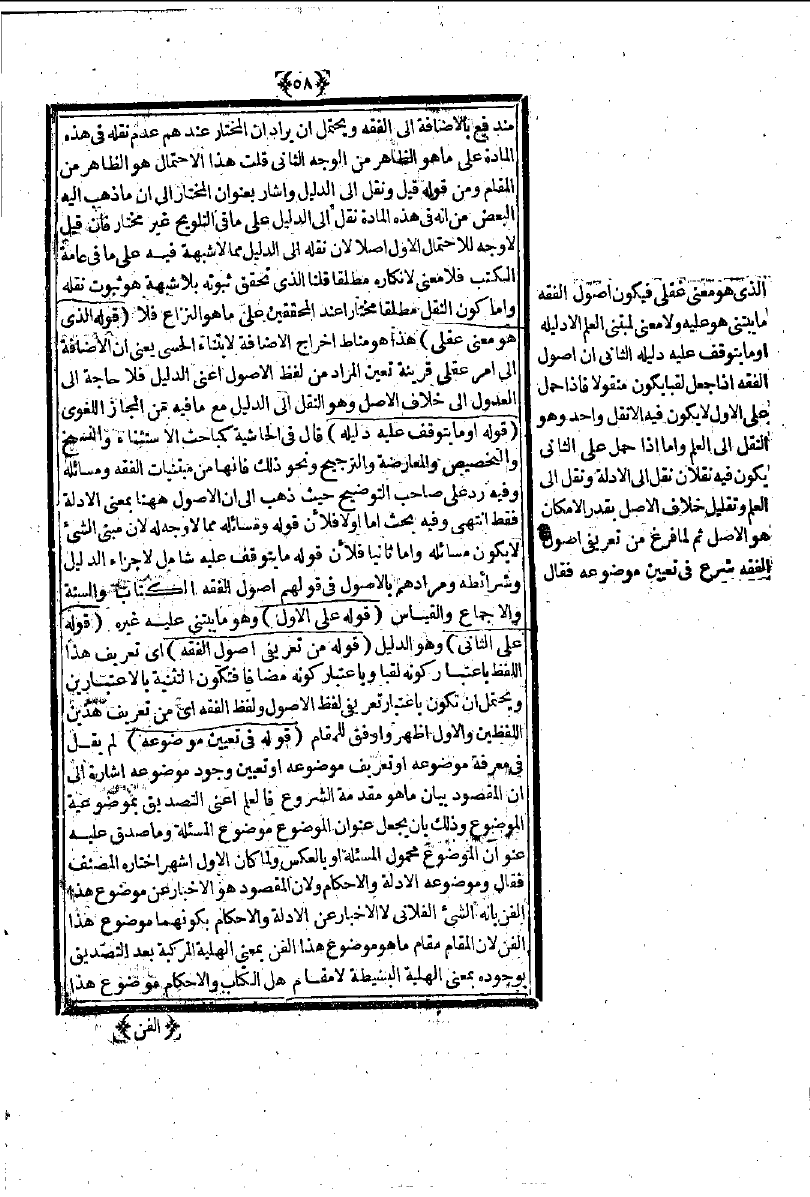 ﴿٥٨﴾
مندفع بالاضافة الى الفقه ويحتمل ان يراد ان المختار عندهم عدم نقله فى هذه
المادة على ماهو الظاهر من الوجه الثانى قلت هذا الاحتمال هو الظاهر من
المقام ومن قوله قيل ونقل الى الدليل واشار بعنوان المختار الى ان ماذهب اليه
البعض من انه فى هذه المادة نقل الى الدليل على مافى التلويح غير مختار فان قيل
لاوجه للاحتمال الاول اصلا لان نقله الى الدليل مما لاشبهة فيه على ما فى عامة
الكتب فلا معنى لانكاره مطلقا قلنا الذى تحقق ثبوته بلاشبهة هو ثبوت نقله
واما كون النقل مطلقا مختارا عند المحققين على ماهو النزاع فلا ( قوله الذى
هو معنى عقلى ) هذا هو مناط اخراج الاضافة لابتناء الحسى يعنى ان الاضافة
الى امر عقلى قرينة تعين المراد من لفظ الاصول اعنى الدليل فلا حاجة الى
العدول الى خلاف الاصل وهو النقل الى الدليل مع مافيه من المجاز اللغوى
( قوله او مايتوقف عليه دليله ) قال فى الحاشية كباحث الاستثناء والنسخ
والتخصيص والمعارضة والترجيح ونحو ذلك فانها من مبتنيات الفقه ومسائله
وفيه رد على صاحب التوضيح حيث ذهب الى ان الاصول ههنا بمعنى الادلة
فقط انتهى وفيه بحث اما اولا فلأن قوله ومسائله مما لاوجه له لان مبنى الشئ
لايكون مسائله واما ثانيا فلأن قوله مايتوقف عليه شامل لاجزاء الدليل
وشرائطه ومرادهم بالاصول فى قولهم اصول الفقه الكتاب والسنة
والاجماع والقياس ( قوله على الاول ) وهو مايبتنى عليه غيره ( قوله
على الثانى ) وهو الدليل ( قوله من تعريفى اصول الفقه ) اى تعريف هذا
اللفظ باعتبار كونه لقبا وباعتبار كونه مضافا فتكون التثنية بالاعتبارين
ويحتمل ان تكون باعتبار تعريفى لفظ الاصول ولفظ الفقه اى من تعريف هذين
اللفظين والاول اظهر واوفق للمقام ( قوله فى تعيين موضوعه ) لم يقل
فى معرفة موضوعه او تعريف موضوعه او تعيين وجود موضوعه اشارة الى
ان المقصود بيان ماهو مقدمة الشروع فالعلم اعنى التصديق بموضوعية
الموضوع وذلك بان يجعل عنوان الموضوع موضوع المسئلة وماصدق عليه
عنوان الموضوع محمول المسئلة او بالعكس ولما كان الاول اشهر اختاره المصنف
فقال وموضوعه الادلة والاحكام ولان المقصود هو الاخبار عن موضوع هذا
الفن بانه الشئ الفلانى لا الاخبار عن الادلة والاحكام بكونهما موضوع هذا
الفن لان المقام مقام ماهو موضوع هذا الفن بمعنى الهلية المركبة بعد التصديق
بوجوده بمعنى الهلية البسيطة لامقام هل الكتاب والاحكام موضوع هذا
﴿ الفن ﴾
الذى هو معنى عقلى فيكون اصول الفقه
مايبتنى هو عليه ولامعنى لمبتنى العلم الادليله
اومايتوقف عليه دليله الثانى ان اصول
الفقه اذا جعل لقبا يكون منقولا فاذا حمل
على الاول لايكون فيه الانقل واحد وهو
النقل الى العلم واما اذا حمل على الثانى
يكون فيه نقلان نقل الى الادلة ونقل الى
العلم وتقليل خلاف الاصل بقدر الامكان
هو الاصل ثم لما فرغ من تعريفى اصول
الفقه شرع فى تعيين موضوعه فقال